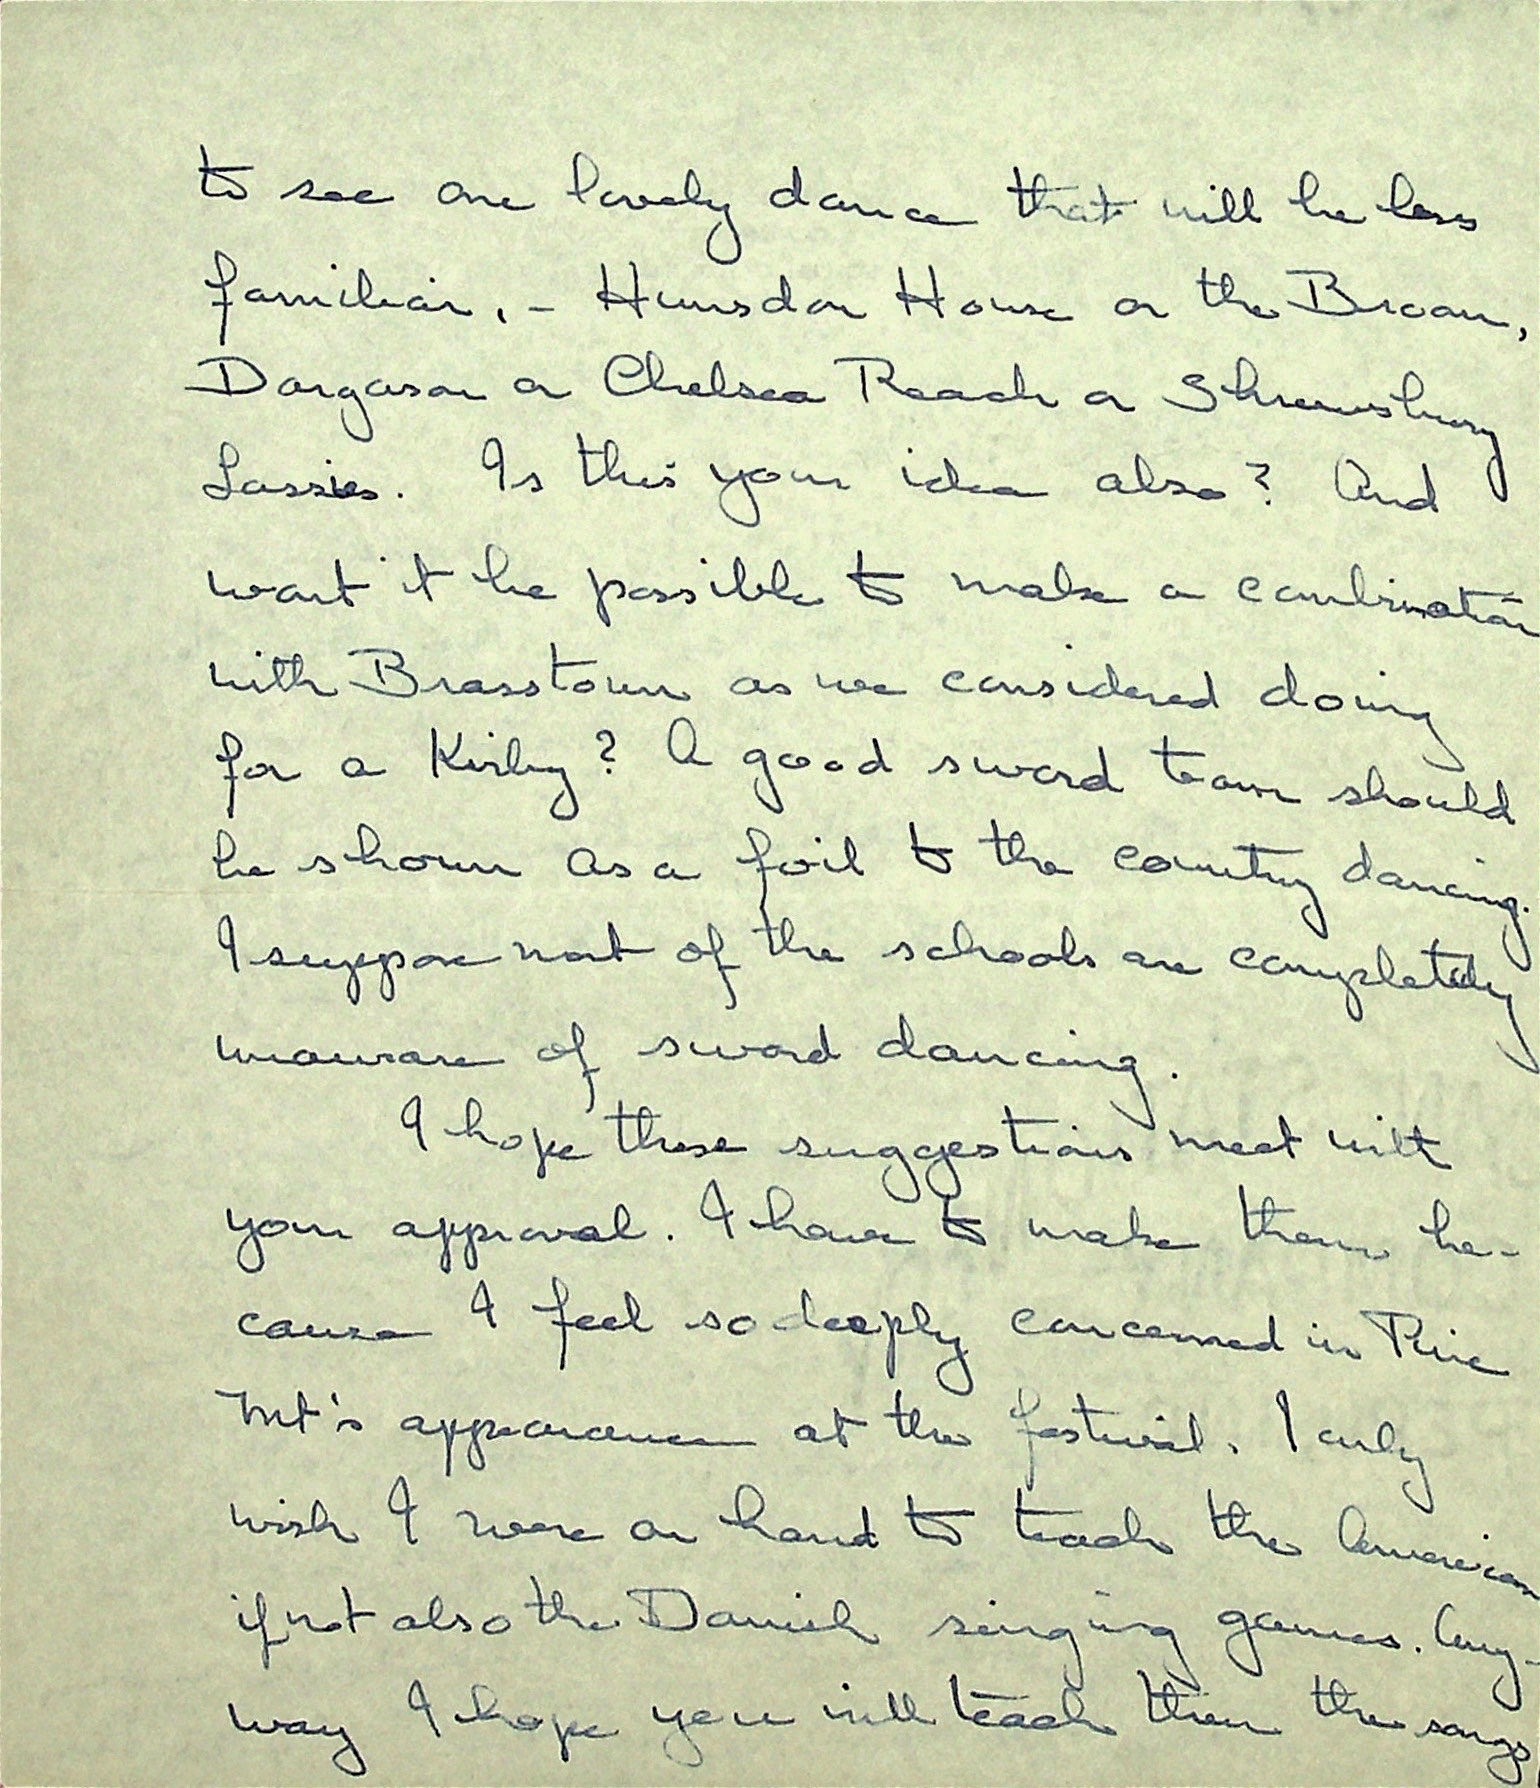 to see one lovely dance that will be less
familiar, - Hunsdon House or the Broom,
Dargason or Chelsea Reach or Shrewsbury
Lassies. Is this your idea also? And
wont it be possible to make a combination
with Brasstown as we considered doing
for a Kirby? A good sword team should
be shown as a foil to the country dancing.
I suppose most of the schools are completely
unaware of sword dancing.
I hope these suggestions meet with
your approval. I have to make them be-
cause I feel so deeply concerned in Pine
Mt's appearance at the festival. I only
wish I were on hand to teach the American
if not also the Danish singing games. Any-
way I hope you will teach them the songs